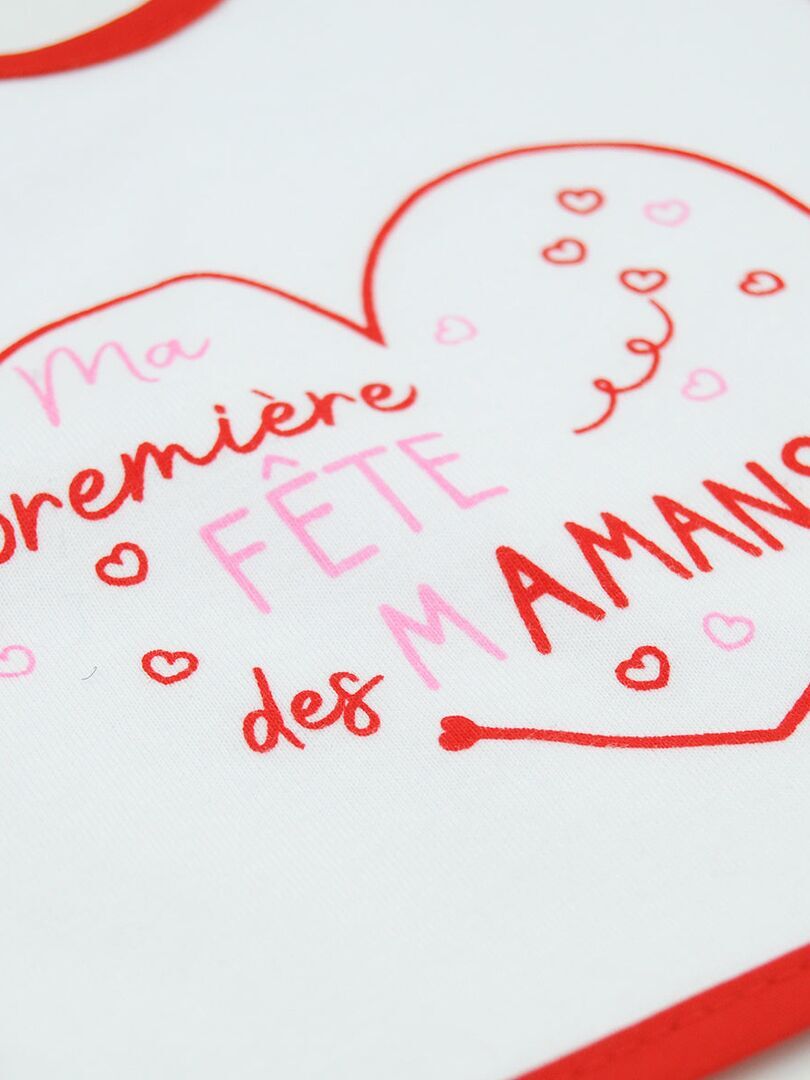 Ma
première
FÊTE
des MAMANS